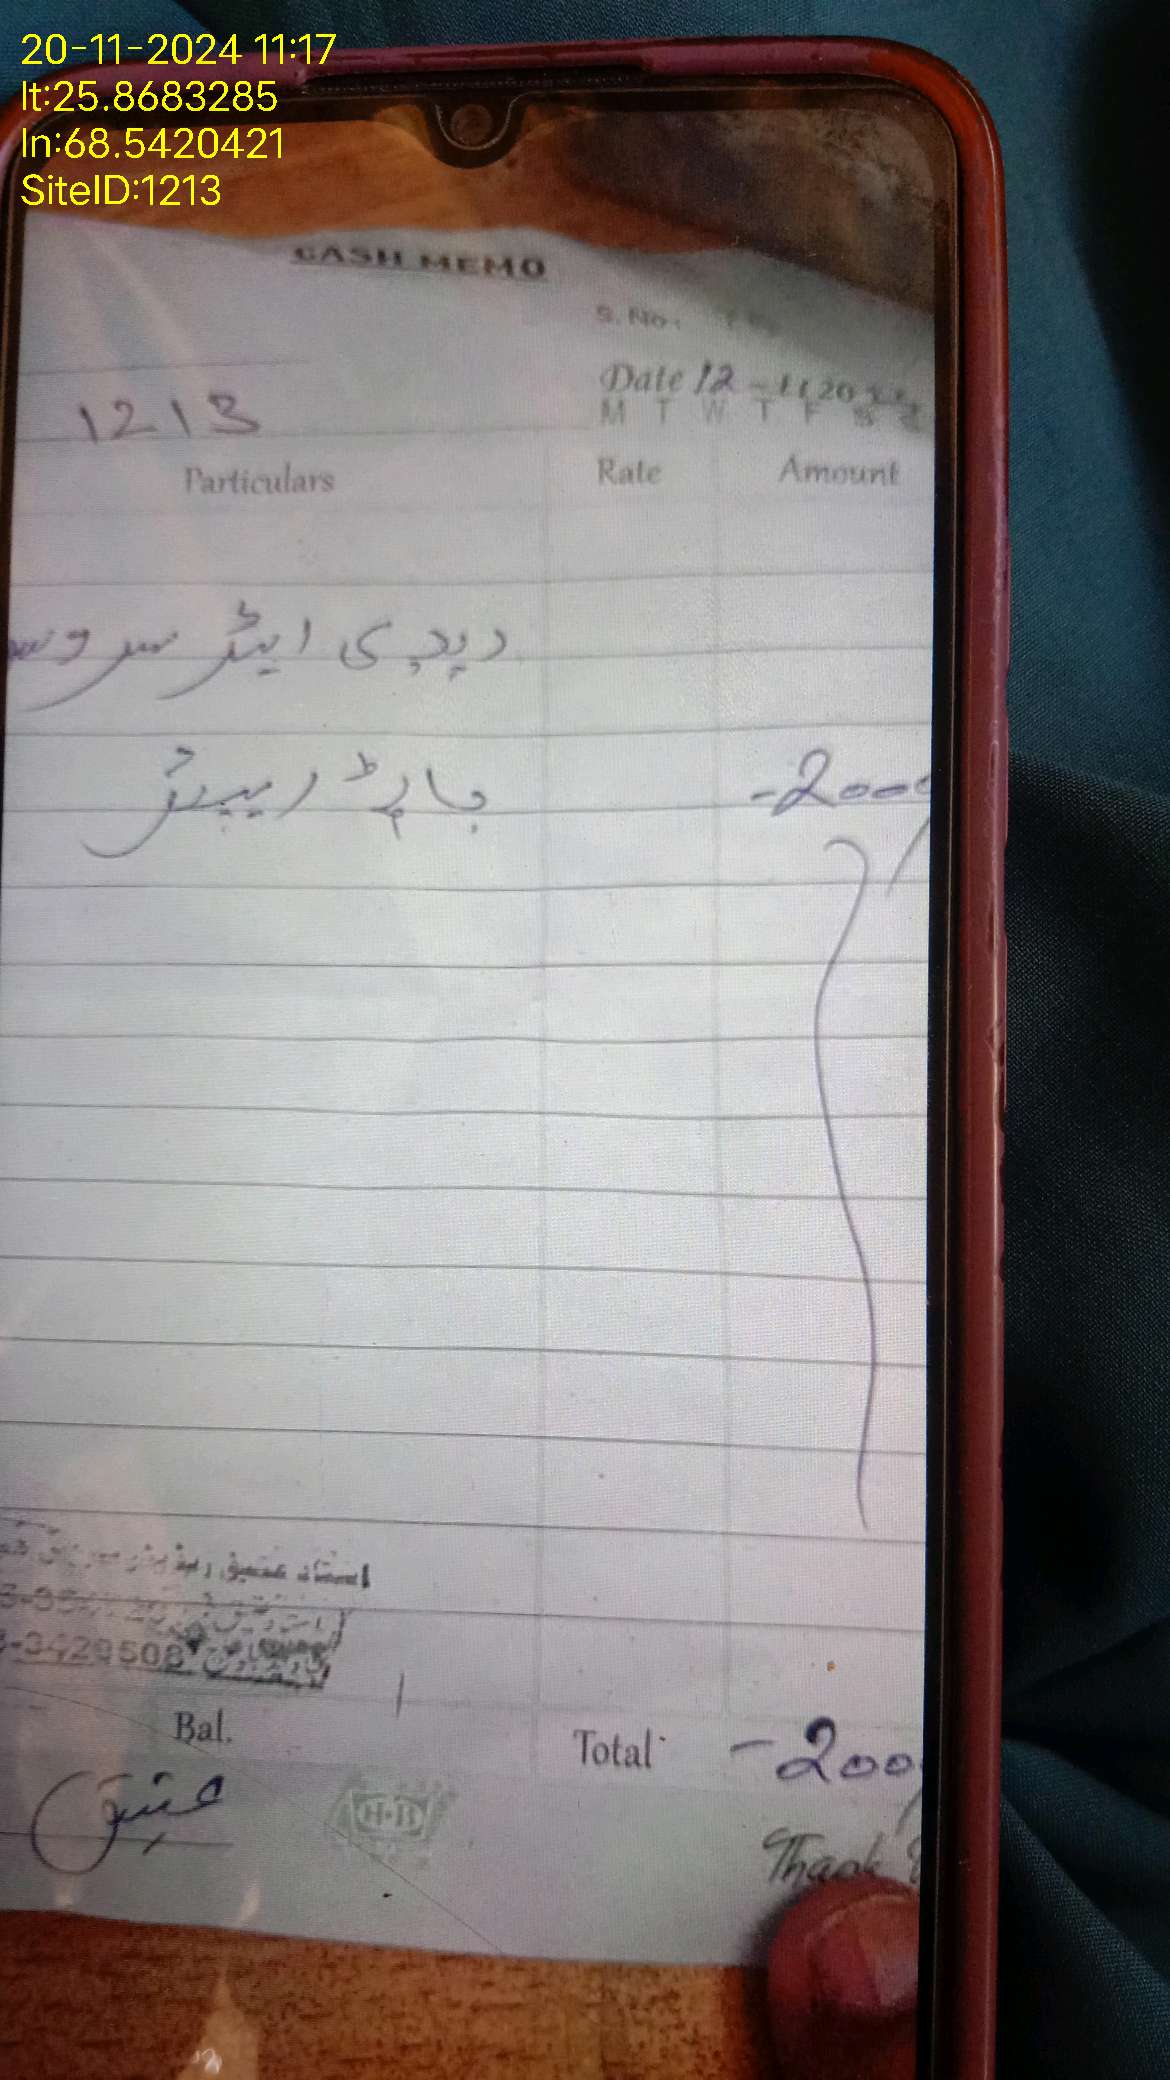 20-11-2024 11:17
lt:25.8683285
ln:68.5420421
SiteID:1213
CASH MEMO
S. No:
Date 12-11 20
M T W T F S S
1213
Particulars Rate Amount
ریڈی ایٹر سروس
پارٹ ریپیئر -2000
استاد عتیق
3429508
Bal. Total -200
عتیق
H.B
Thank